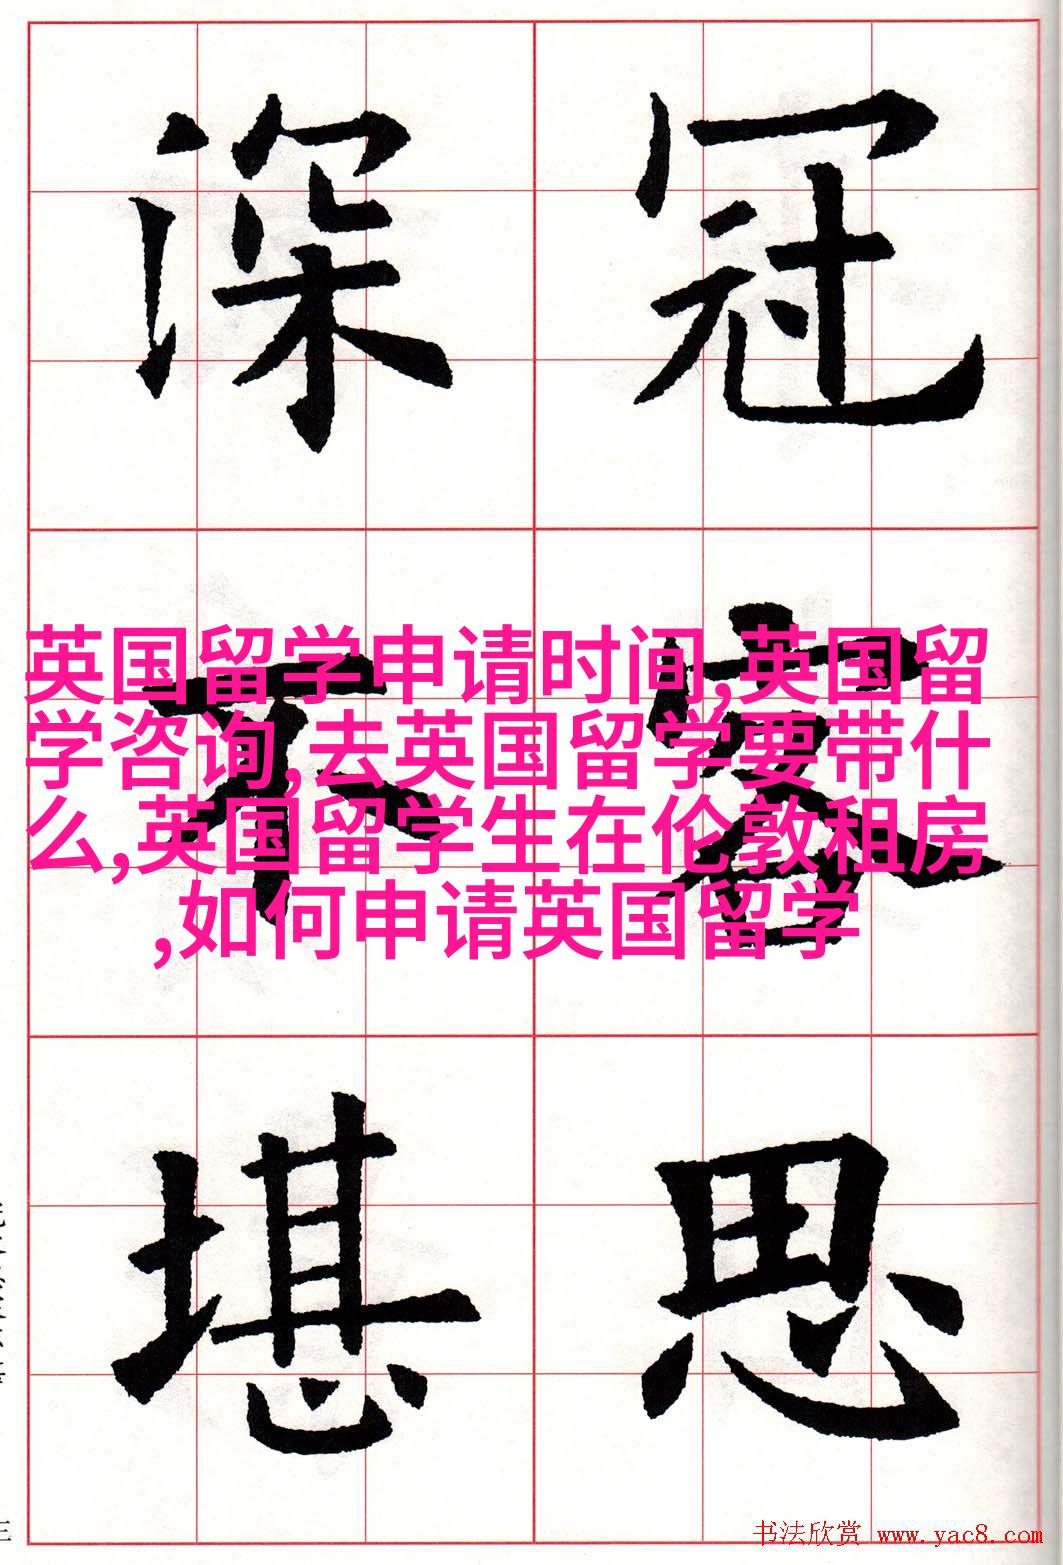 深冠
不容
堪思
英国留学申请时间,英国留
学咨询,去英国留学要带什
么,英国留学生在伦敦租房
,如何申请英国留学
三
书法欣赏 www.yac8.com